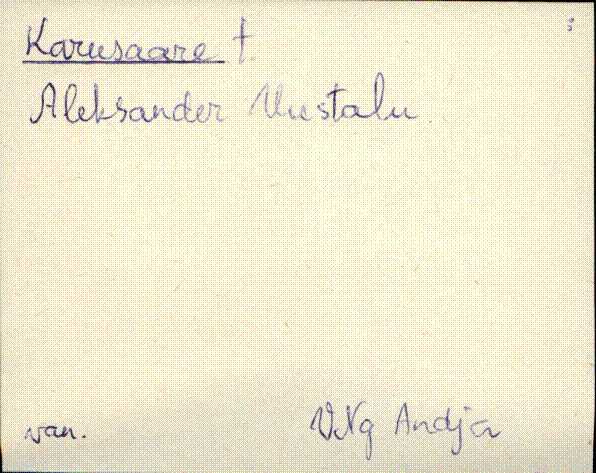 Karusaare t.
Aleksander Uustalu
van. VNg Andja